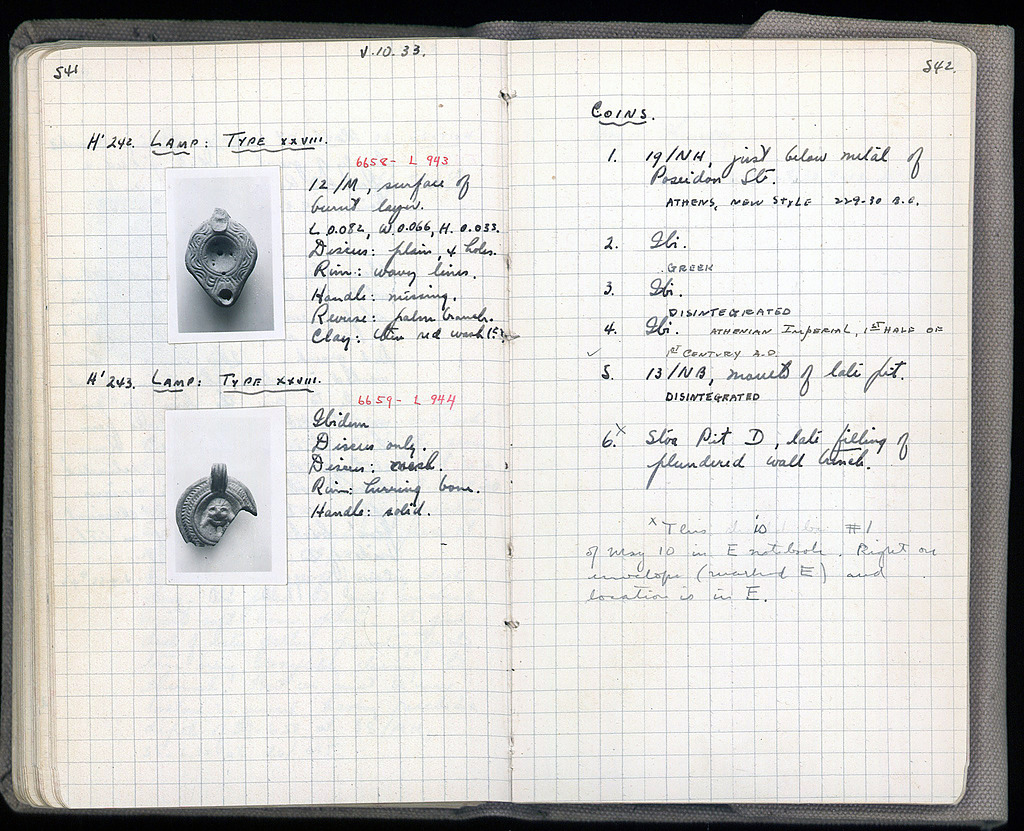 541
V.10.33.
H' 242. LAMP: TYPE XXVIII.
6658- L 943
12/M, surface of
burnt layer.
L 0.082, W 0.066, H. 0.033.
Discus: plain, 4 holes.
Rim: wavy lines.
Handle: missing.
Reverse: palm branch.
Clay: red wash
H' 243. LAMP: TYPE XXVIII.
6659- L 944
Ibidem
Discus only.
Discus:
Rim: herring bone.
Handle: solid.
542.
COINS.
1. 19/NH, just below metal of
Poseidon St.
ATHENS, NEW STYLE 229-30 B.C.
2. Ibi.
GREEK
3. Ibi.
DISINTEGRATED
4. Ibi. ATHENIAN IMPERIAL, 1ST HALF OF
1ST CENTURY A.D.
5. 13/NB, of late pit.
DISINTEGRATED
6.x Stoa Pit D, late filling of
plundered wall trench.
x This is #1
of May 10 in E notebook. Right on
envelope (marked E) and
location is in E.